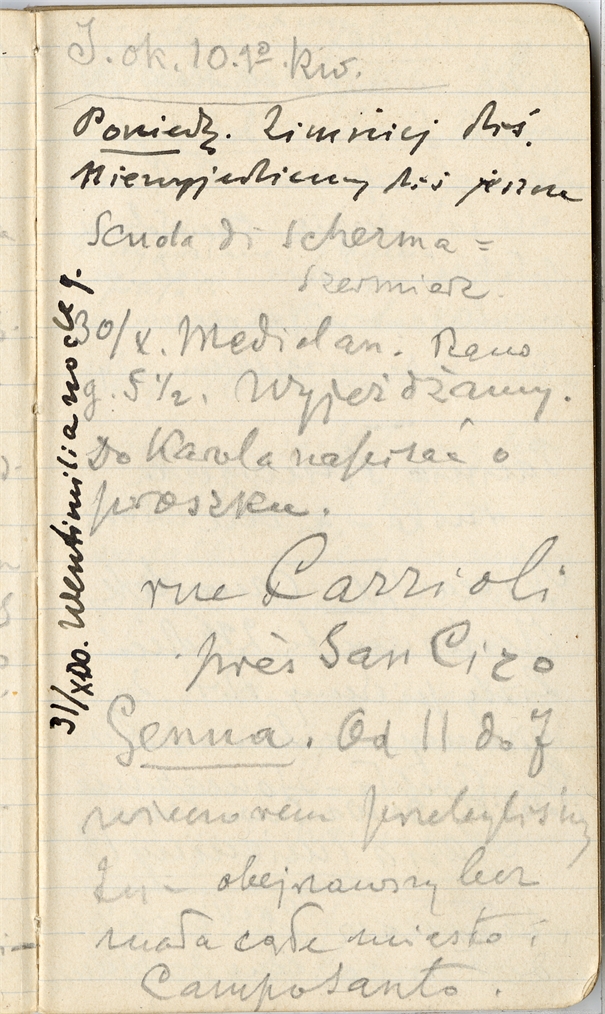 J. ok. 10.10. kw.
Poniedz. Zimniej dziś.
Niewyjedziemy dziś jeszcze
Scuola di Scherma =
Szermierz.
30/X. Medjolan. Rano
g. 5½. Wyjeżdżamy.
Do Karola napisać o
proszku.
rue Carzioli
près San Ciro
Genua. Od 11 do 7
wieczorem przebyliśmy
tu – obejrzawszy bez
mała całe miasto i
Camposanto.
31/X Do. Wentimilia nocleg.